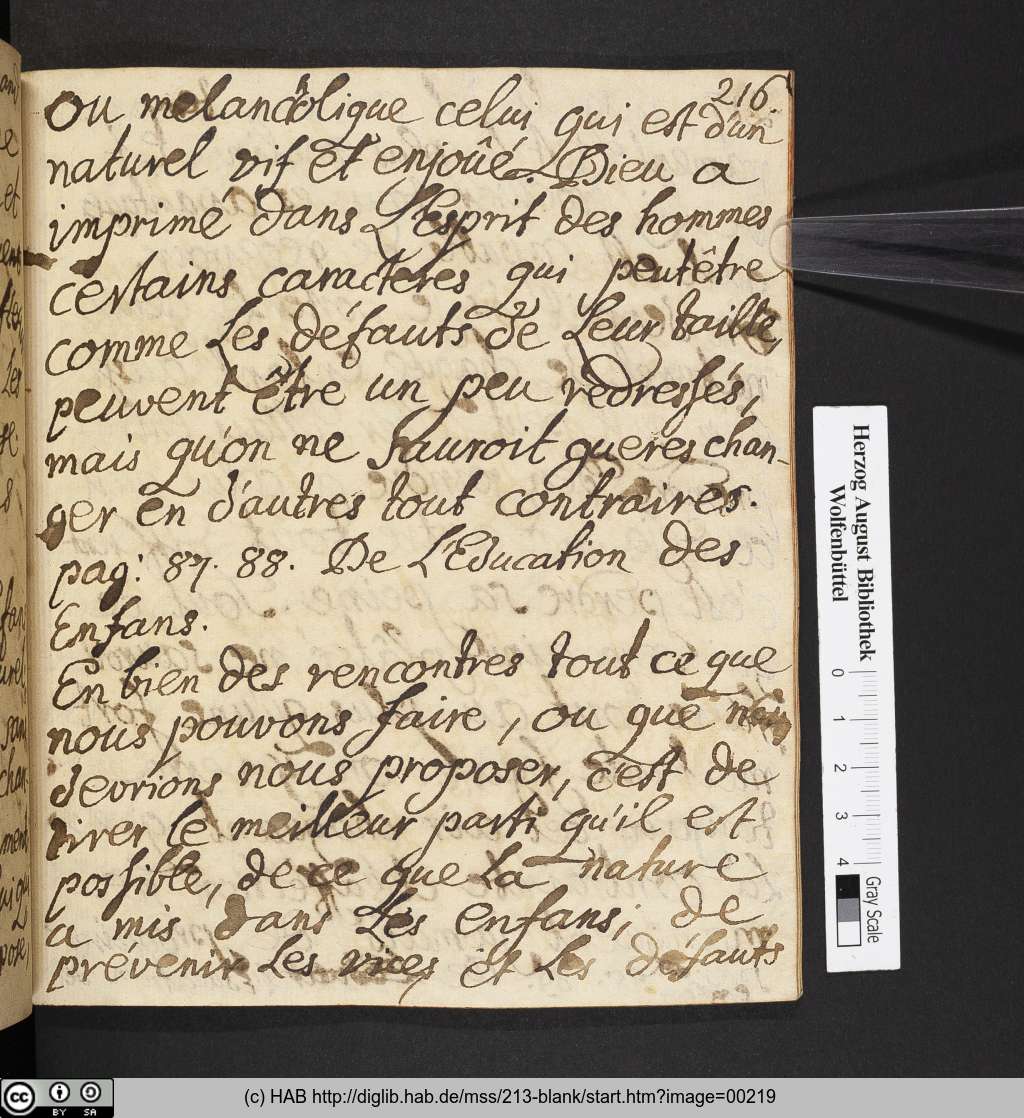 216.
ou melancholique celui qui est d'un
naturel vif et enjoûé. Dieu a
imprimé dans L'Esprit des hommes
certains caracteres qui peutêtre
comme Les défauts de Leur taille,
peuvent être un peu redressés,
mais qu'on ne sauroit gueres chan-
ger en d'autres tout contraires.
pag: 87. 88. De L'Education des
Enfans.
En bien des rencontres tout ce que
nous pouvons faire, ou que nous
devrions nous proposer, c'est de
tirer le meilleur parti qu'il est
possible, de ce que La nature
a mis dans Les enfans; de
prévenir Les vices et Les défauts
Herzog August Bibliothek
Wolfenbüttel
0 1 2 3 4
Gray Scale
cc BY SA
(c) HAB http://diglib.hab.de/mss/213-blank/start.htm?image=00219